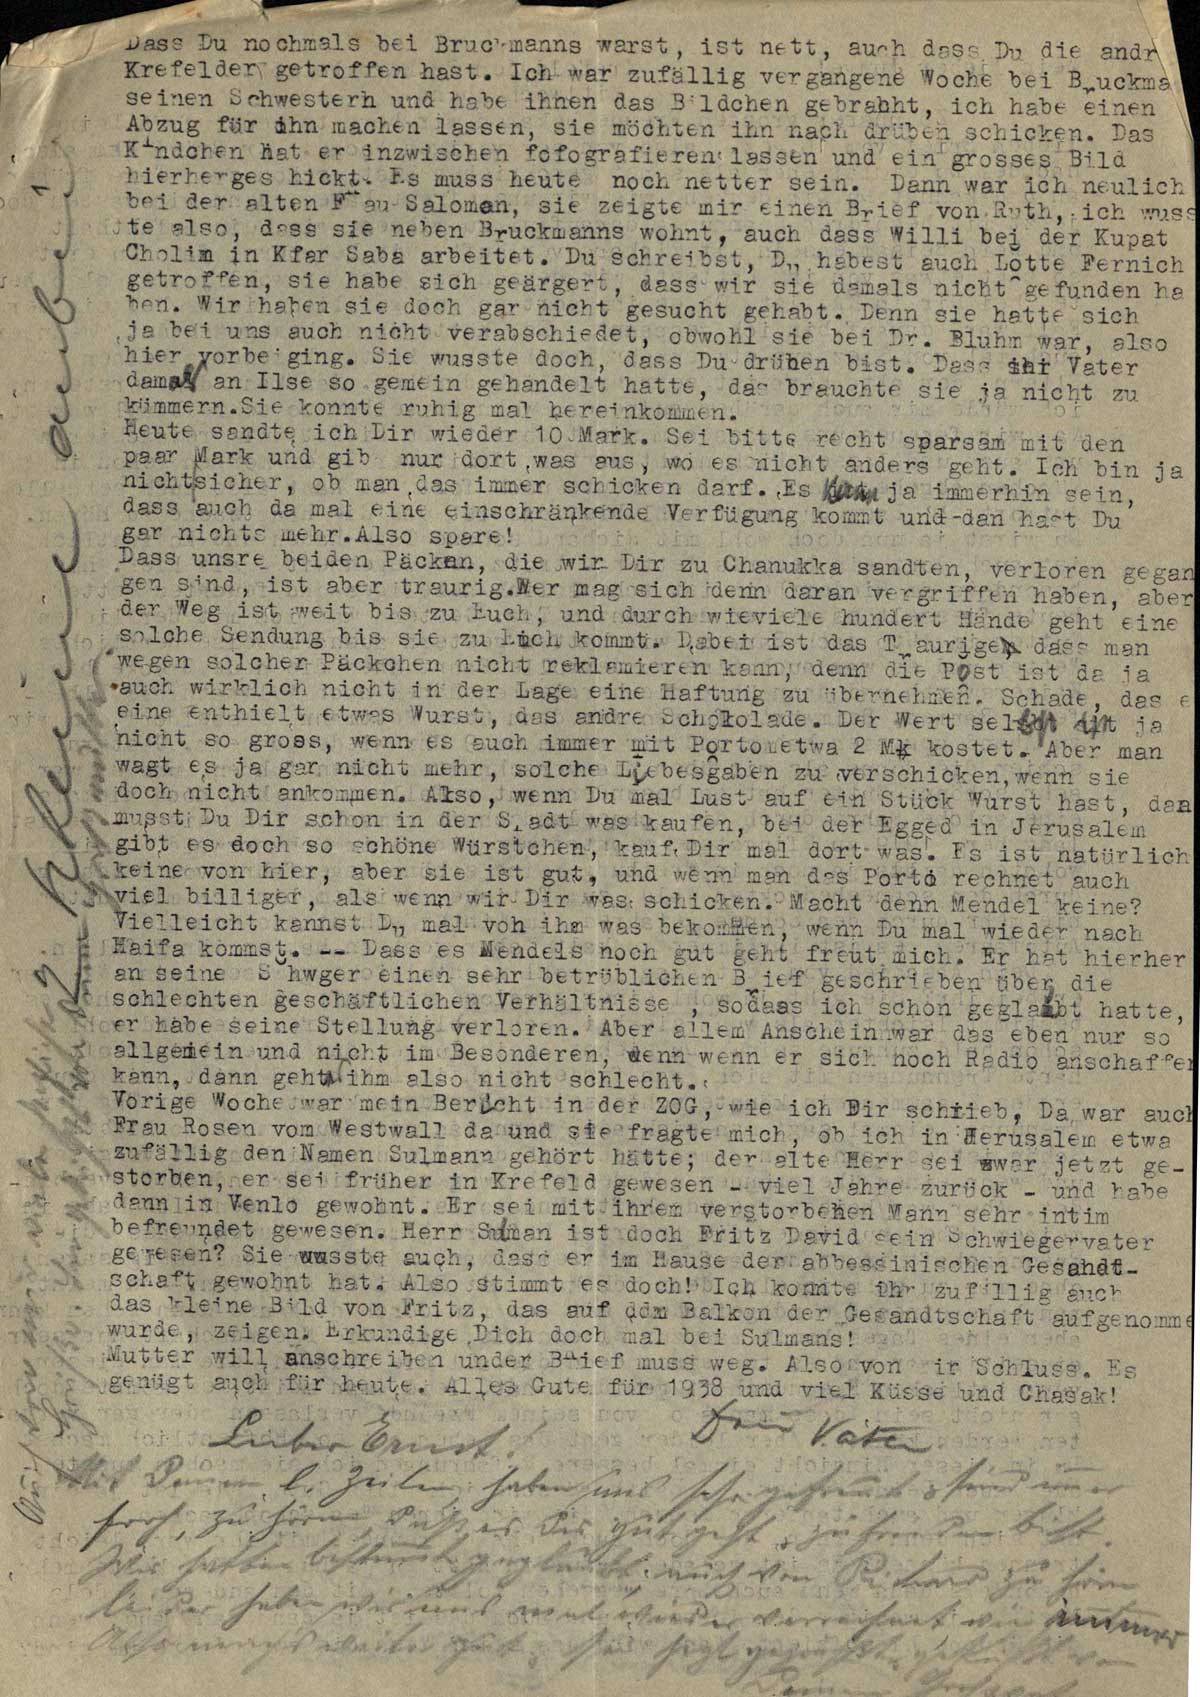 Dass Du nochmals bei Bruckmanns warst, ist nett, auch dass Du die andr
Krefelder getroffen hast. Ich war zufällig vergangene Woche bei Bruckma
seinen Schwestern und habe ihnen das Bildchen gebrahht, ich habe einen
Abzug für ihn machen lassen, sie möchten ihn nach drüben schicken. Das
Kindchen hat er inzwischen fofografieren lassen und ein grosses Bild
hierherges hickt. Es muss heute noch netter sein. Dann war ich neulich
bei der alten Frau Saloman, sie zeigte mir einen Brief von Ruth, ich wuss
te also, dass sie neben Bruckmanns wohnt, auch dass Willi bei der Kupat
Cholim in Kfar Saba arbeitet. Du schreibst, Du habest auch Lotte Fernich
getroffen, sie habe sich geärgert, dass wir sie damals nicht gefunden ha
ben. Wir haben sie doch gar nicht gesucht gehabt. Denn sie hatte sich
ja bei uns auch nicht verabschiedet, obwohl sie bei Dr. Bluhm war, also
hier vorbeiging. Sie wusste doch, dass Du drüben bist. Dass ihr Vater
damals an Ilse so gemein gehandelt hatte, das brauchte sie ja nicht zu
kümmern.Sie konnte ruhig mal hereinkommen.
Heute sandte ich Dir wieder 10 Mark. Sei bitte recht sparsam mit den
paar Mark und gib nur dort was aus, wo es nicht anders geht. Ich bin ja
nicht sicher, ob man das immer schicken darf. Es kann ja immerhin sein,
dass auch da mal eine einschränkende Verfügung kommt und dan hast Du
gar nichts mehr.Also spare!
Dass unsre beiden Päcken, die wir Dir zu Chanukka sandten, verloren gegan
gen sind, ist aber traurig.Wer mag sich denn daran vergriffen haben, aber
der Weg ist weit bis zu Euch, und durch wieviele hundert Hände geht eine
solche Sendung bis sie zu Euch kommt. Dabei ist das Traurige, dass man
wegen solcher Päckchen nicht reklamieren kann, denn die Post ist da ja
auch wirklich nicht in der Lage eine Haftung zu übernehmen. Schade, das e
eine enthielt etwas Wurst, das andre Schokolade. Der Wert selbst ist ja
nicht so gross, wenn es auch immer mit Porto etwa 2 Mk kostet. Aber man
wagt es ja gar nicht mehr, solche Liebesgaben zu verschicken,wenn sie
doch nicht ankommen. Also, wenn Du mal Lust auf ein Stück Wurst hast, dan
musst Du Dir schon in der Stadt was kaufen, bei der Egged in Jerusalem
gibt es doch so schöne Würstchen, kauf Dir mal dort was. Es ist natürlich
keine von hier, aber sie ist gut, und wenn man das Porto rechnet auch
viel billiger, als wenn wir Dir was schicken. Macht denn Mendel keine?
Vielleicht kannst Du mal von ihm was bekommen, wenn Du mal wieder nach
Haifa kommst. -- Dass es Mendels noch gut geht freut mich. Er hat hierher
an seine S hwger einen sehr betrüblichen Brief geschrieben über die
schlechten geschäftlichen Verhältnisse , sodass ich schon geglaubt hatte,
er habe seine Stellung verloren. Aber allem Anschein war das eben nur so
allgemein und nicht im Besonderen, denn wenn er sich noch Radio anschaffen
kann, dann geht ihm also nicht schlecht.
Vorige Woche war mein Bericht in der ZOG, wie ich Dir schrieb, Da war auch
Frau Rosen vom Westwall da und sie fragte mich, ob ich in Jerusalem etwa
zufällig den Namen Sulmann gehört hätte; der alte Herr sei zwar jetzt ge-
storben, er sei früher in Krefeld gewesen - viel Jahre zurück - und habe
dann in Venlo gewohnt. Er sei mit ihrem verstorbenen Mann sehr intim
befreundet gewesen. Herr Sulman ist doch Fritz David sein Schwiegervater
gewesen? Sie wusste auch, dass er im Hause der abbessinischen Gesandt-
schaft gewohnt hat. Also stimmt es doch! Ich konnte ihr zufällig auch
das kleine Bild von Fritz, das auf ddm Balkon der Gesandtschaft aufgenomme
wurde, zeigen. Erkundige Dich doch mal bei Sulmans!
Mutter will anschreiben under Brief muss weg. Also von ir Schluss. Es
genügt auch für heute. Alles Gute für 1938 und viel Küsse und Chasak!
Dein Vater
Lieber Ernst!
Mit Deinen l. Zeilen haben uns sehr gefreut sind immer
froh, zu hören, daß es Dir gut geht zufrieden bist.
Wir hatten bestimmt geglaubt auch von Richard zu hören
leider haben wir uns mal wieder verrechnet wie immer